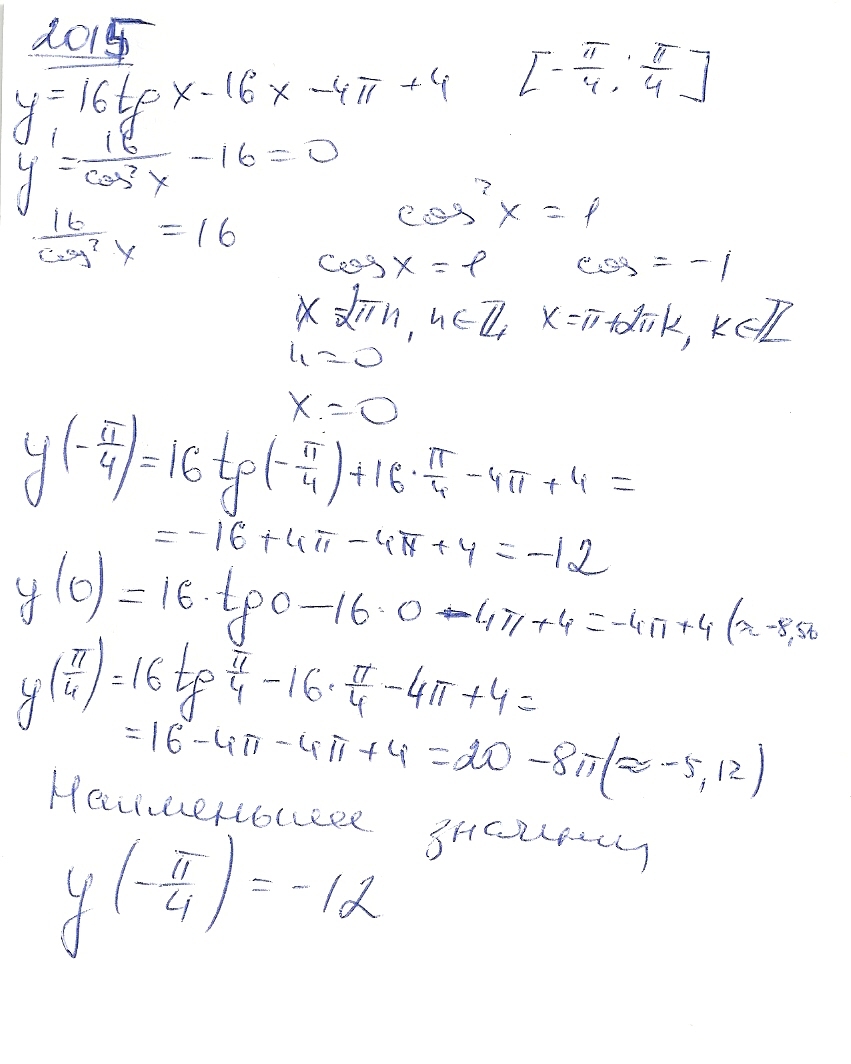 2015
y = 16 tg x - 16x - 4π + 4 [-π/4; π/4]
y' = 16/cos²x - 16 = 0
16/cos²x = 16 cos²x = 1
cos x = 1 cos = -1
x = 2πn, n∈Z, x = π+2πk, k∈Z
n = 0
x = 0
y(-π/4) = 16 tg(-π/4) + 16·π/4 - 4π + 4 =
= -16 + 4π - 4π + 4 = -12
y(0) = 16·tg 0 - 16·0 - 4π + 4 = -4π + 4 (≈ -8,56
y(π/4) = 16 tg π/4 - 16·π/4 - 4π + 4 =
= 16 - 4π - 4π + 4 = 20 - 8π (≈ -5,12)
Наименьшее значение
y(-π/4) = -12